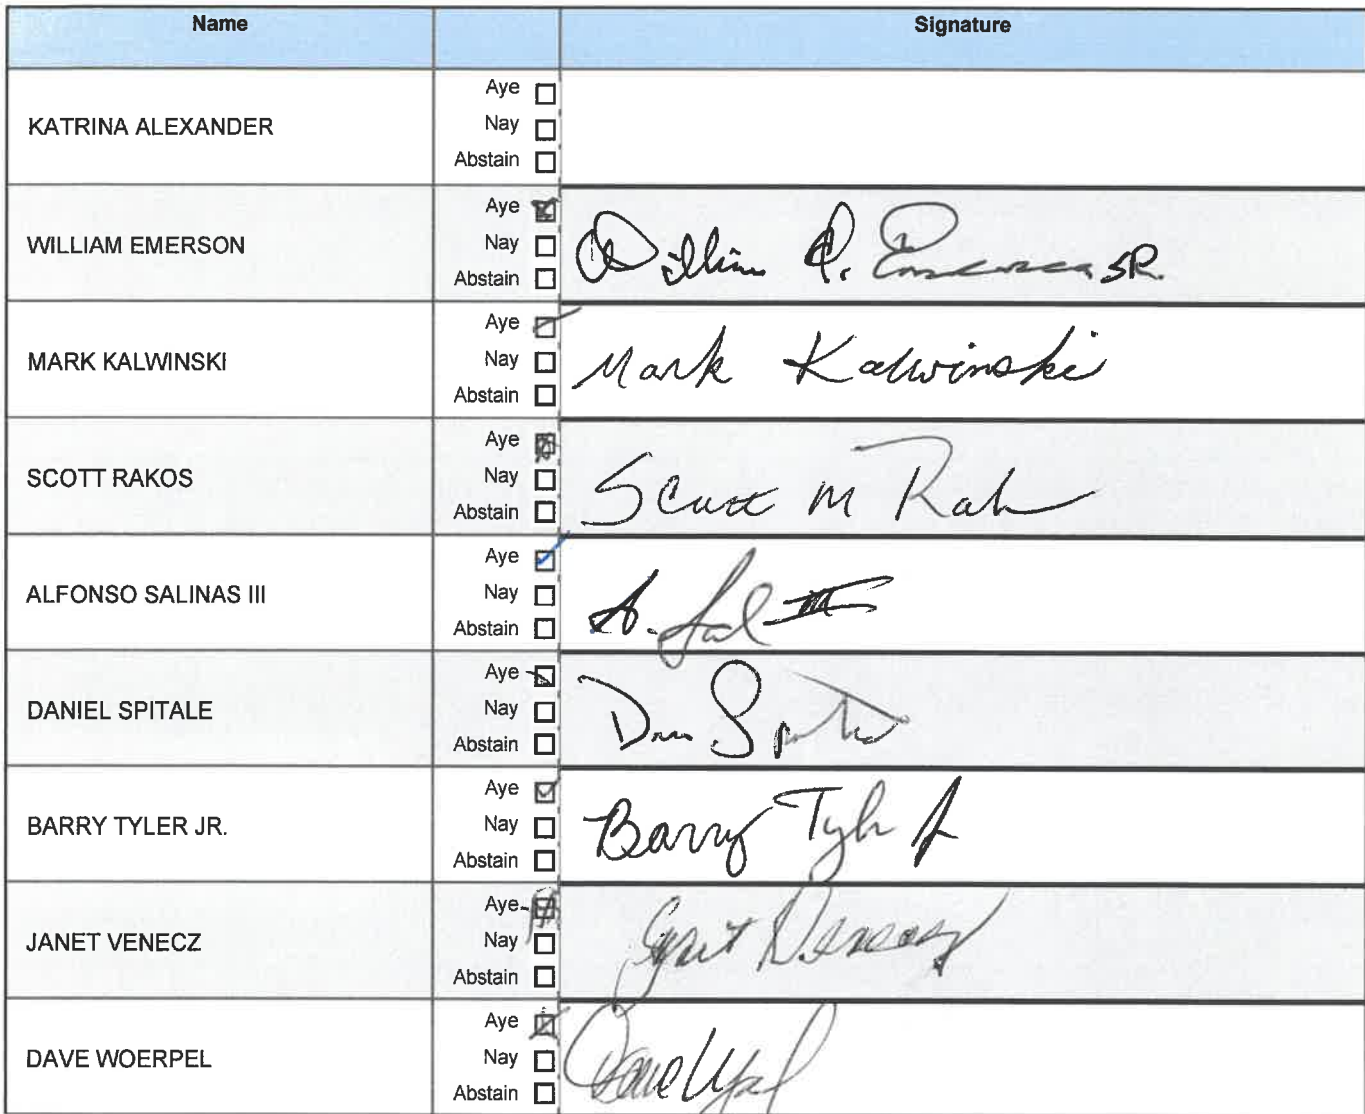 Name Signature
KATRINA ALEXANDER
Aye
Nay
Abstain
WILLIAM EMERSON
Aye
Nay
Abstain
William Emerson SR.
MARK KALWINSKI
Aye
Nay
Abstain
Mark Kalwinski
SCOTT RAKOS
Aye
Nay
Abstain
Scott M
ALFONSO SALINAS III
Aye
Nay
Abstain
A. III
DANIEL SPITALE
Aye
Nay
Abstain
Dan
BARRY TYLER JR.
Aye
Nay
Abstain
Barry Tyler Jr
JANET VENECZ
Aye
Nay
Abstain
Janet Venecz
DAVE WOERPEL
Aye
Nay
Abstain
Dave